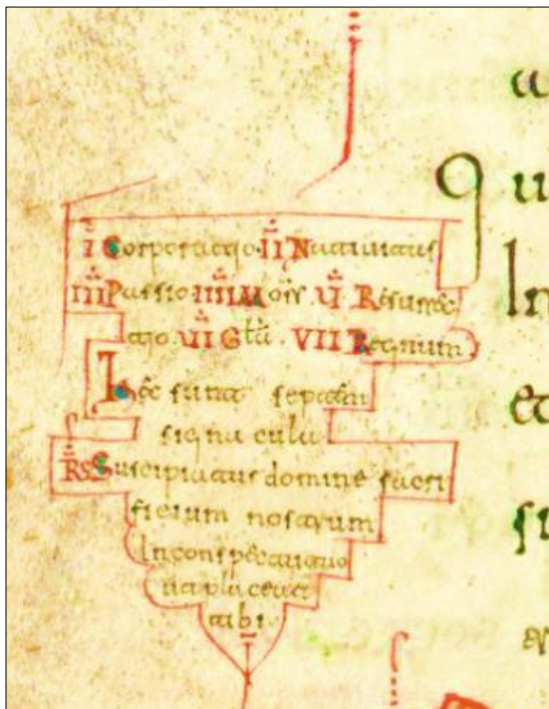 I Corporatio II Natiuitas
IIII Passio IIIII Mors VI Resurrec
tio VII Gla VII Regnum
Hec sunt septem
signacula
RS Suscipiatur domine sacri
ficium nostrum
In conspectu tuo
ut placeat
tibi
qu
In
et
si